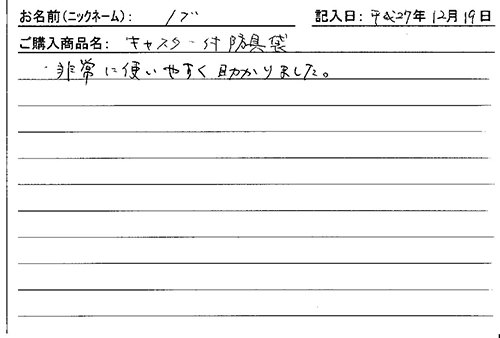 お名前(ニックネーム): ノブ 記入日: 平成27年12月19日
ご購入商品名: キャスター付防具袋
・非常に使いやすく助かりました。